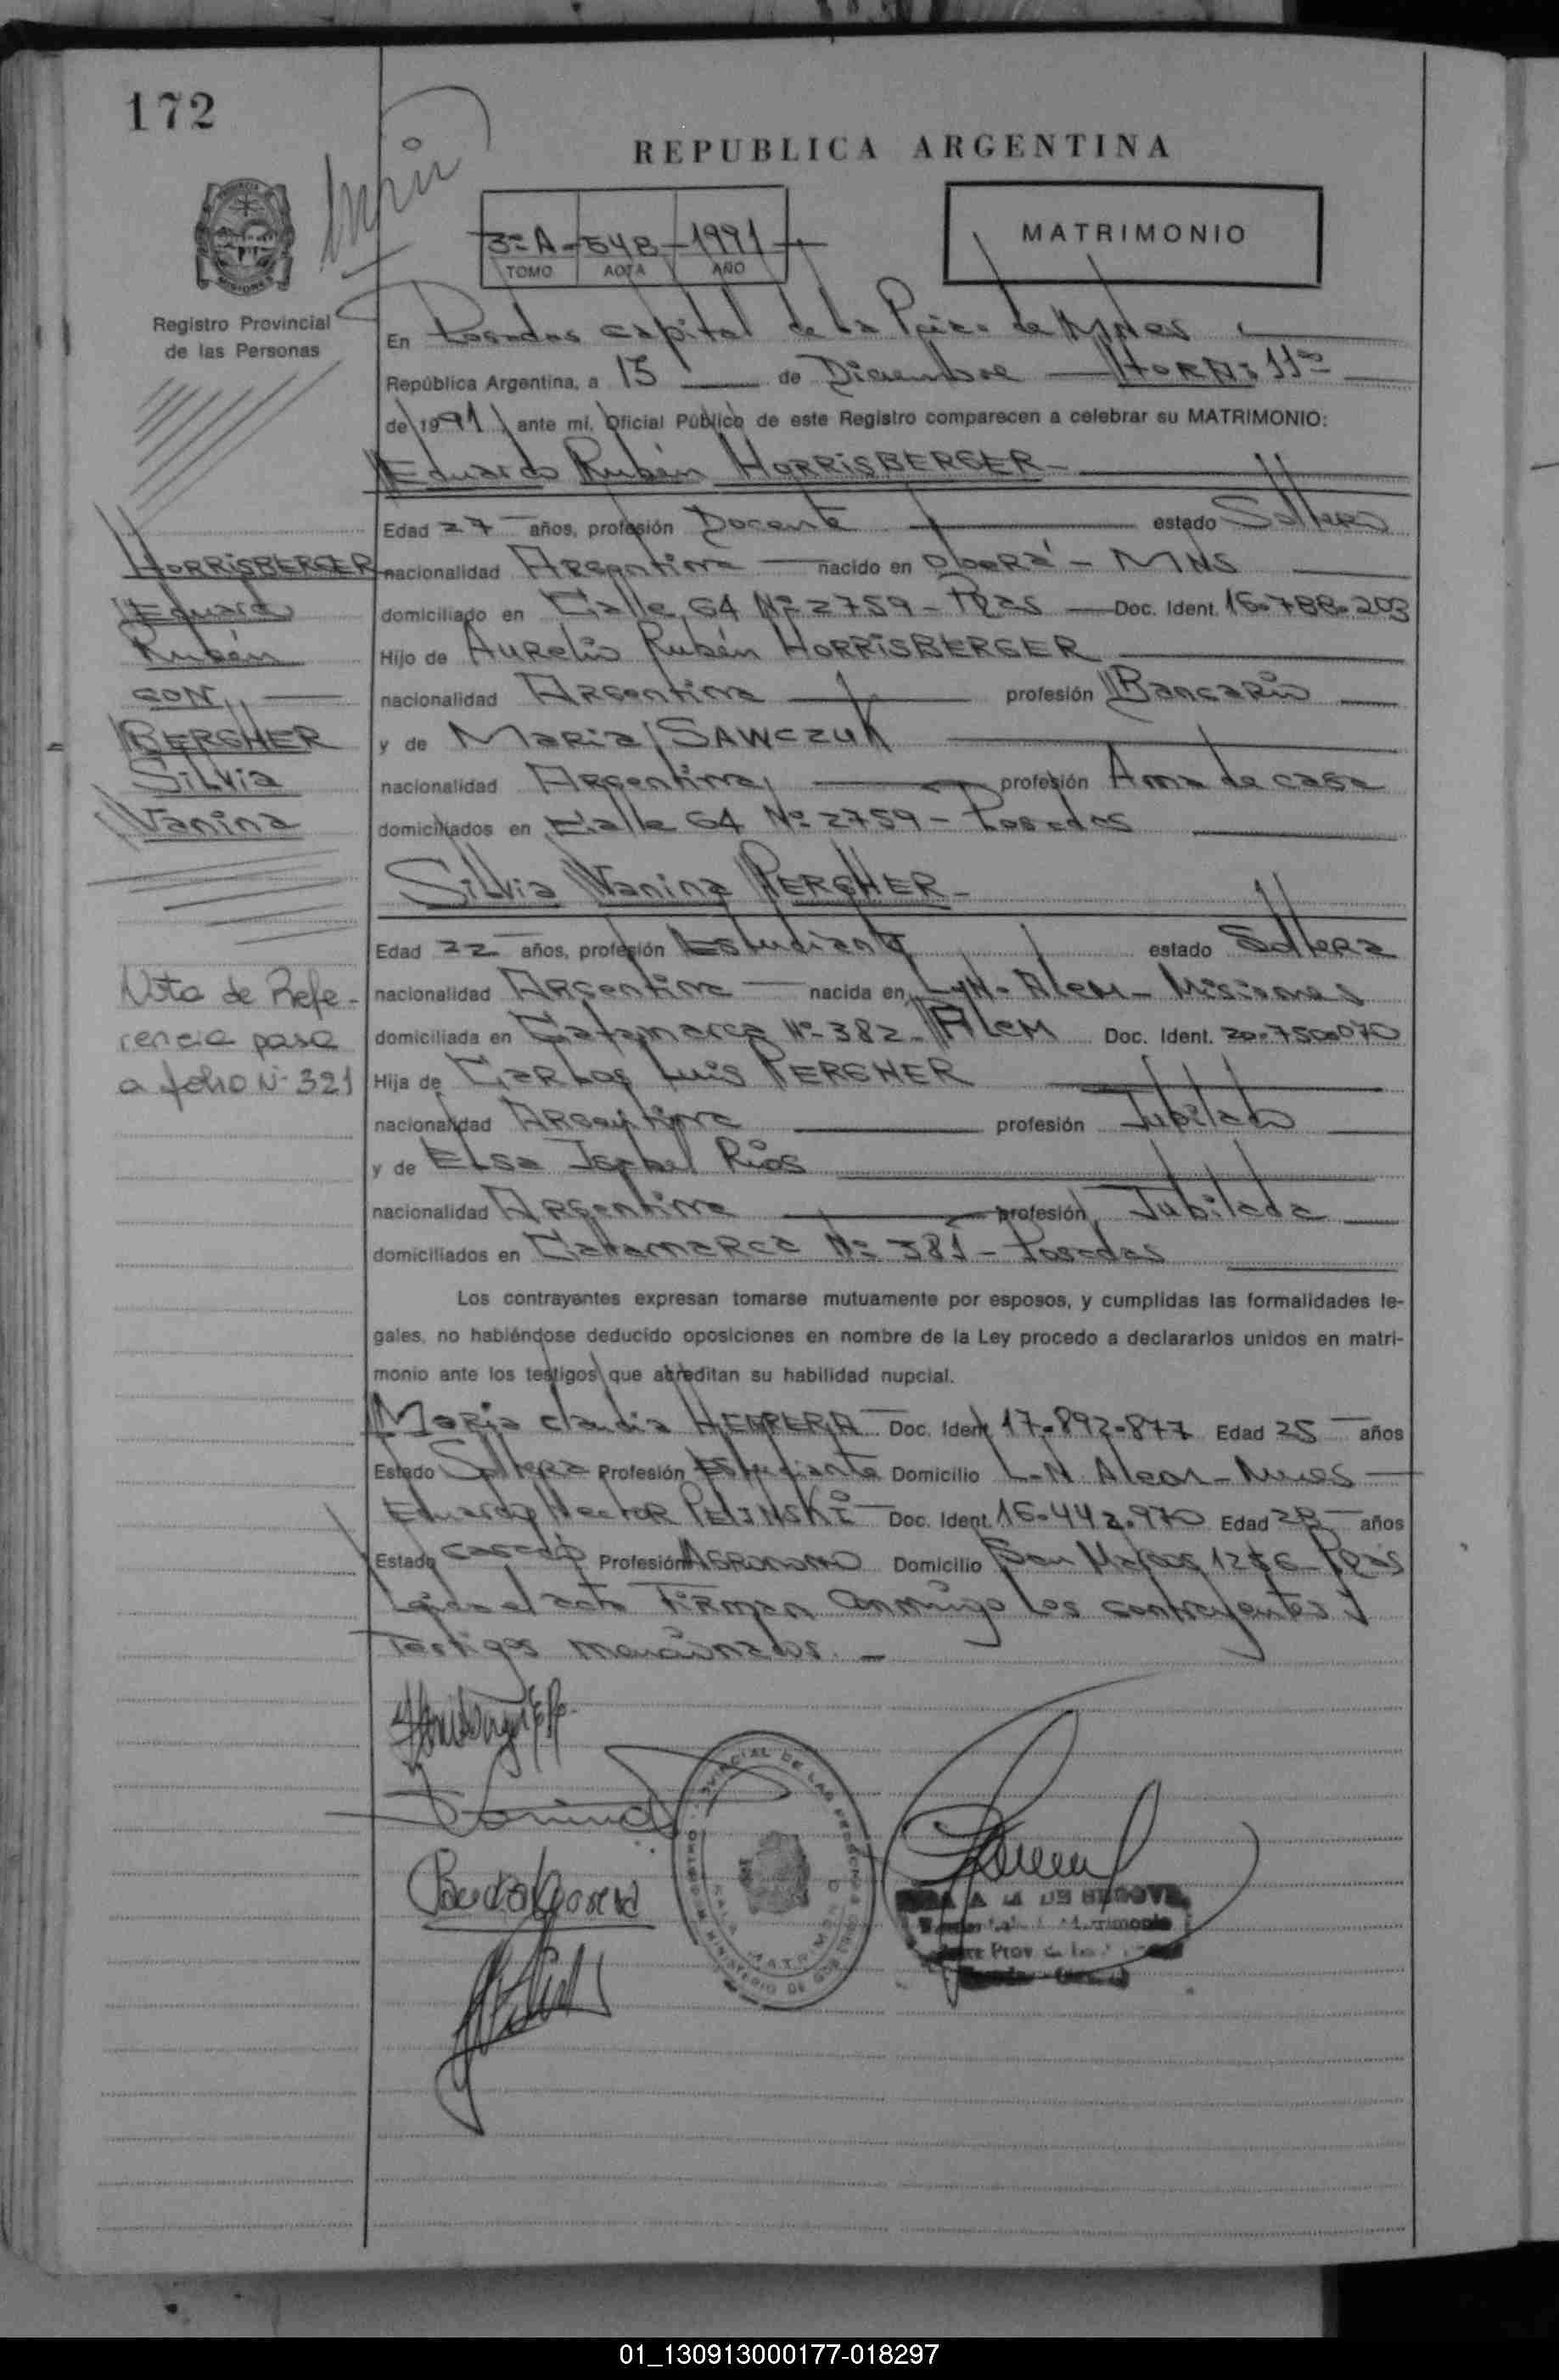 172
REPUBLICA ARGENTINA
3º A - 548 - 1991
TOMO ACTA AÑO
MATRIMONIO
Registro Provincial
de las Personas
En Posadas Capital de la Pcia. de Mnes
República Argentina, a 15 de Diciembre HORA: 11
de 1991, ante mí, Oficial Público de este Registro comparecen a celebrar su MATRIMONIO:
Eduardo Rubén HORRISBERGER
Edad 27 años, profesión Docente estado Soltero
nacionalidad Argentina nacido en Oberá - MNS
domiciliado en Calle 64 Nº 2759 - Pdas Doc. Ident. 16.788.203
Hijo de Aurelio Rubén HORRISBERGER
nacionalidad Argentina profesión Bancario
y de Maria SAWCZUK
nacionalidad Argentina profesión Ama de casa
domiciliados en Calle 64 Nº 2759 - Posadas
Silvia Vanina PERGHER
Edad 22 años, profesión Estudiante estado Soltera
nacionalidad Argentina nacida en L. N. Alem - Misiones
domiciliada en Catamarca Nº 382 - Alem Doc. Ident. 20.750.070
Hija de Carlos Luis PERGHER
nacionalidad Argentina profesión Jubilado
y de Elsa Isabel Ríos
nacionalidad Argentina profesión Jubilada
domiciliados en Catamarca Nº 381 - Posadas
Los contrayentes expresan tomarse mutuamente por esposos, y cumplidas las formalidades le-
gales, no habiéndose deducido oposiciones en nombre de la Ley procedo a declararlos unidos en matri-
monio ante los testigos que acreditan su habilidad nupcial.
Maria Claudia HERRERA Doc. Ident. 17.892.877 Edad 25 años
Estado Soltera Profesión Estudiante Domicilio L. N Alem - Mnes
Eduardo Hector PELINSKI Doc. Ident. 16.442.970 Edad 28 años
Estado Casado Profesión Agronomo Domicilio San Pdas
Leída el acta Firman conmigo los contrayentes y
Testigos mencionados.
HORRISBERGER
Eduardo
Rubén
CON
BERGHER
Silvia
Vanina
Nota de Refe-
rencia pasa
a folio Nº 321
01_130913000177-018297